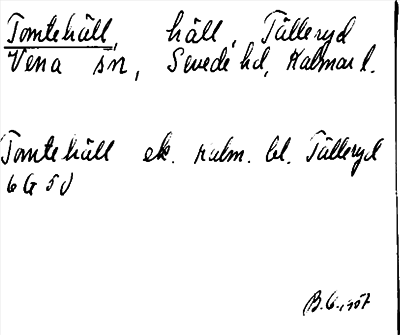 Tomtehäll, häll, Tälleryd
Vena sn, Sevede hd, Kalmar l.
Tomtehäll ek. Kalm. bl. Tälleryd
6G 5d